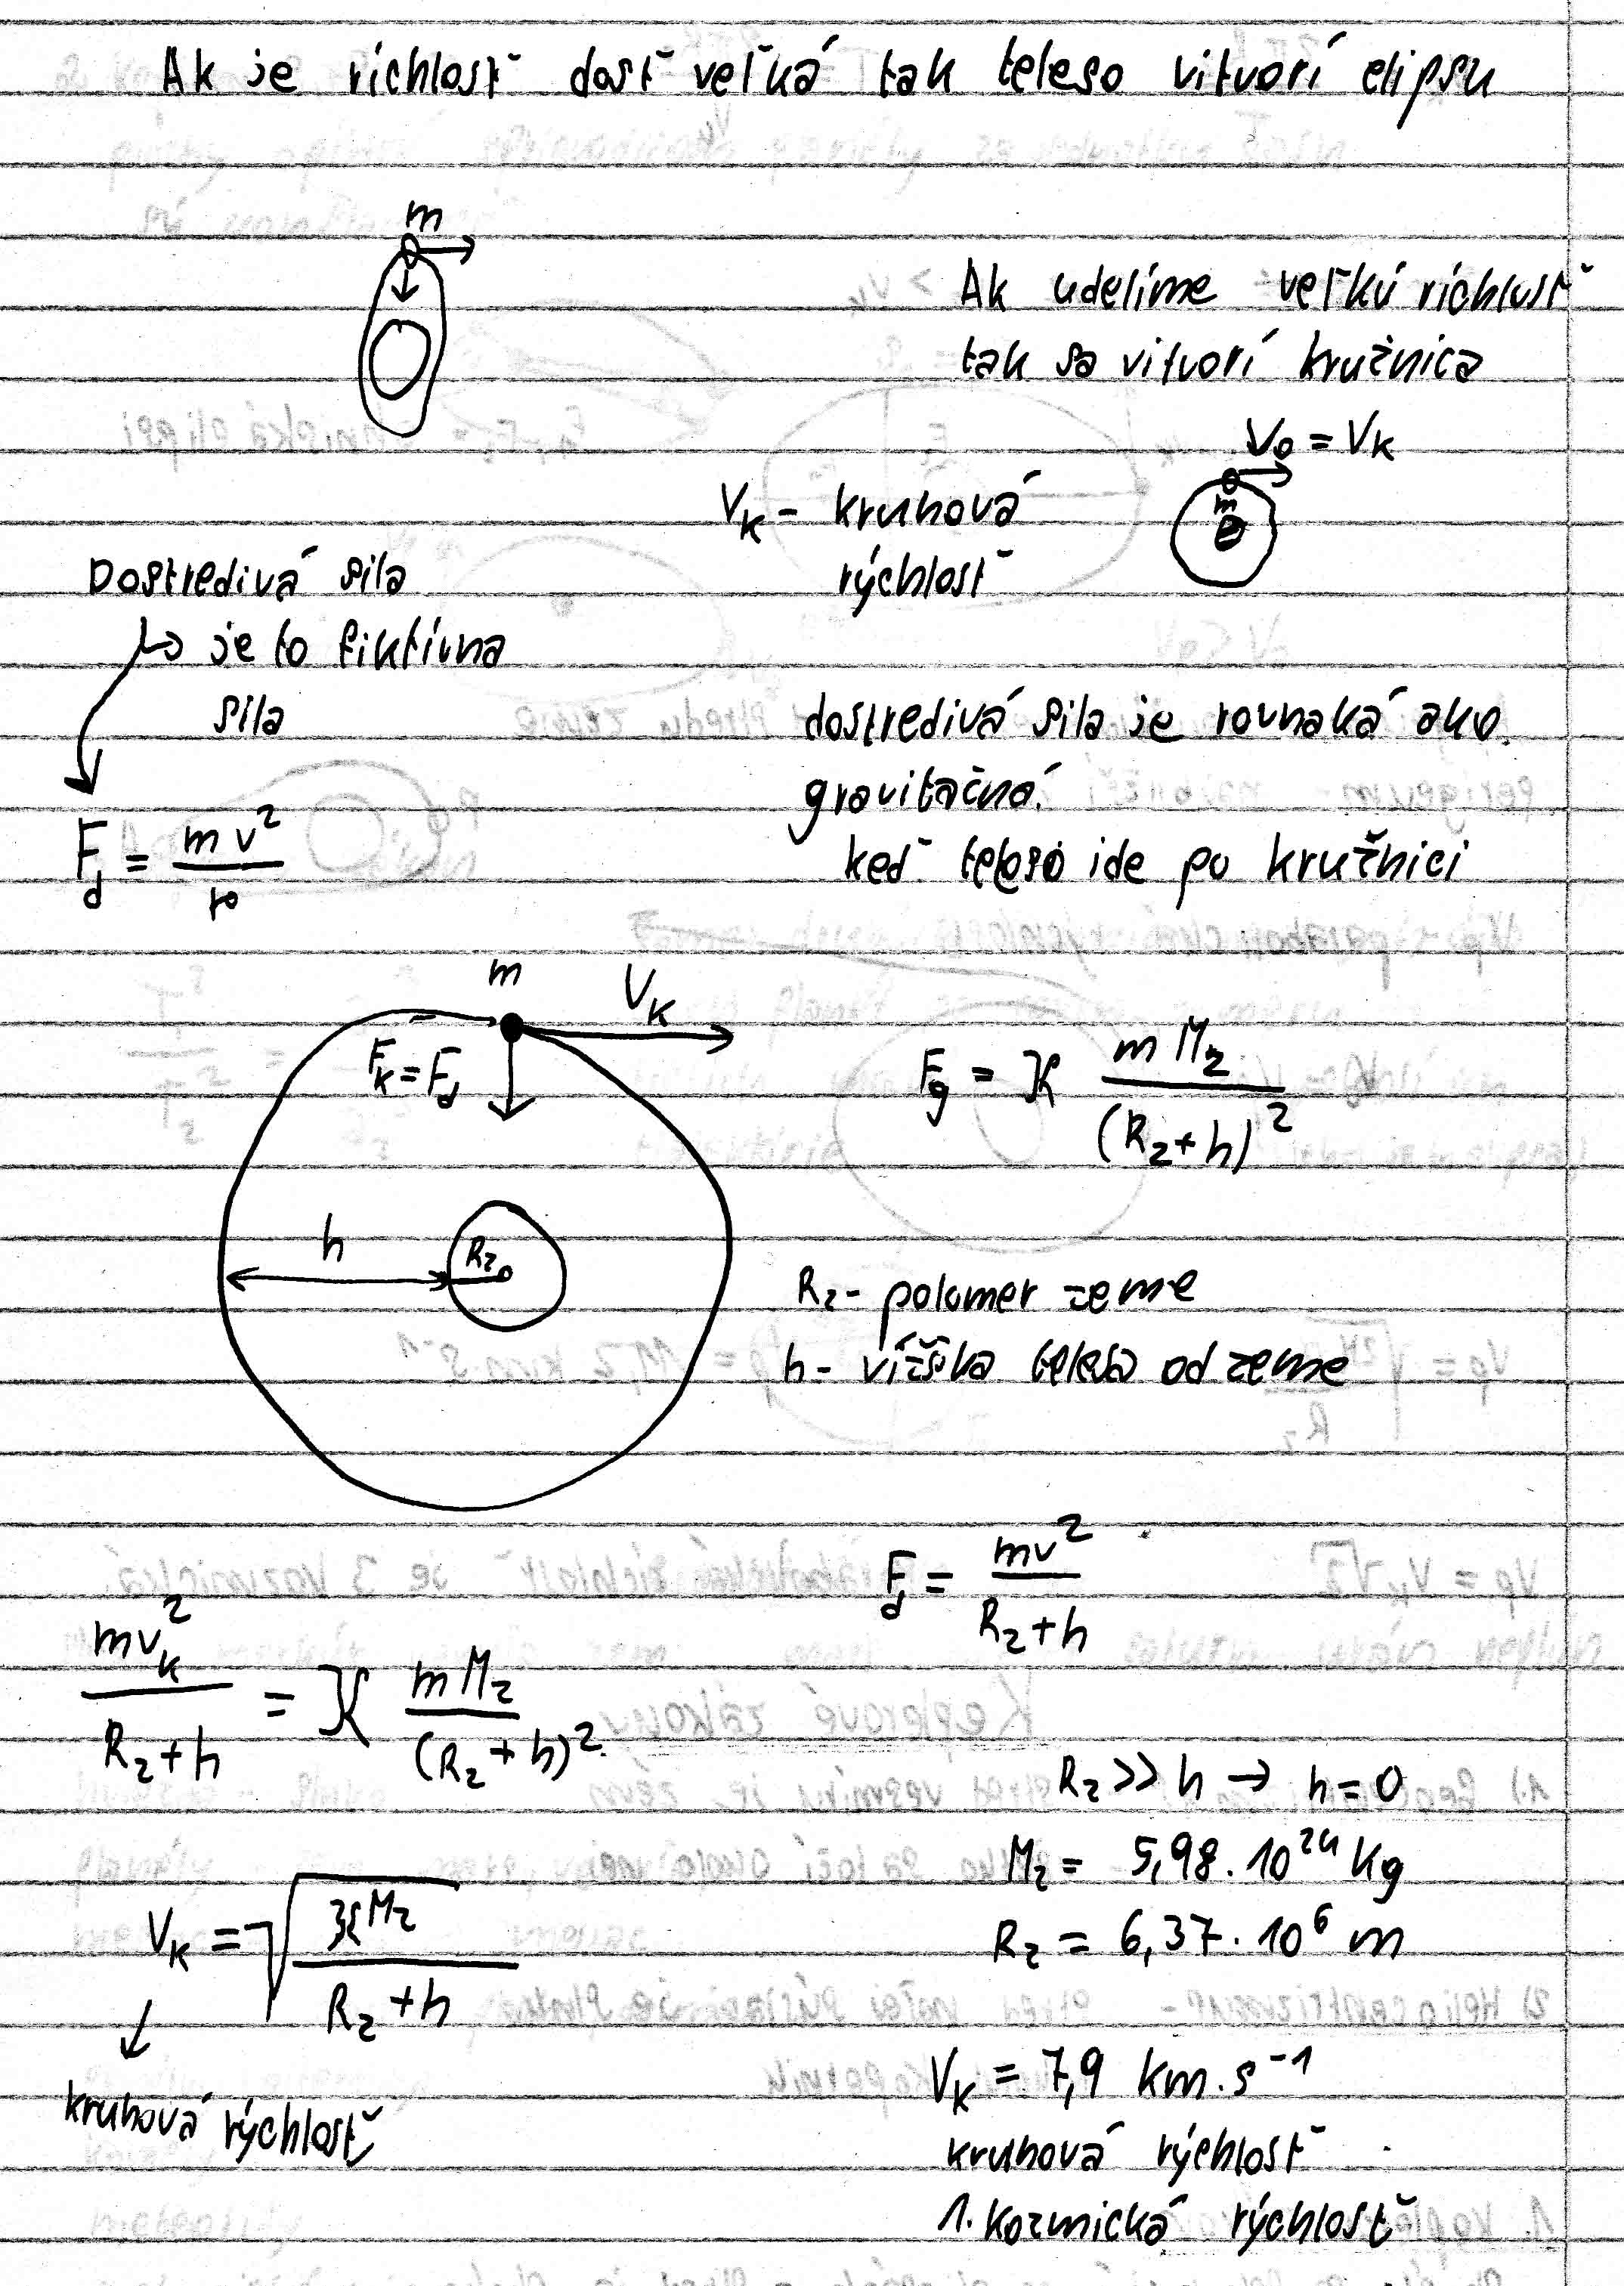 Ak je richlosť dosť veľká tak teleso vitvorí elipsu
m
Ak udelíme veľkú richlosť
tak sa vitvorí kružnica
V₀ = Vₖ
m
Vₖ - kruhová
rýchlosť
Dostredivá sila
↳ je to fiktívna
sila
F_d = mv²/r
dostredivá sila je rovnaká ako
gravitačná.
keď teleso ide po kružnici
m
Vₖ
Fₖ = F_d
F_g = ϰ mM_z/(R_z+h)²
h
R_z
R_z - polomer zeme
h - víška telesa od zeme
F_d = mv²/(R_z+h)
mvₖ²/(R_z+h) = ϰ mM_z/(R_z+h)²
R_z >> h → h = 0
M_z = 5,98 . 10²⁴ kg
Vₖ = √(ϰM_z/(R_z+h))
R_z = 6,37 . 10⁶ m
kruhová rýchlosť
Vₖ = 7,9 km.s⁻¹
kruhová rýchlosť
1. kozmická rýchlosť